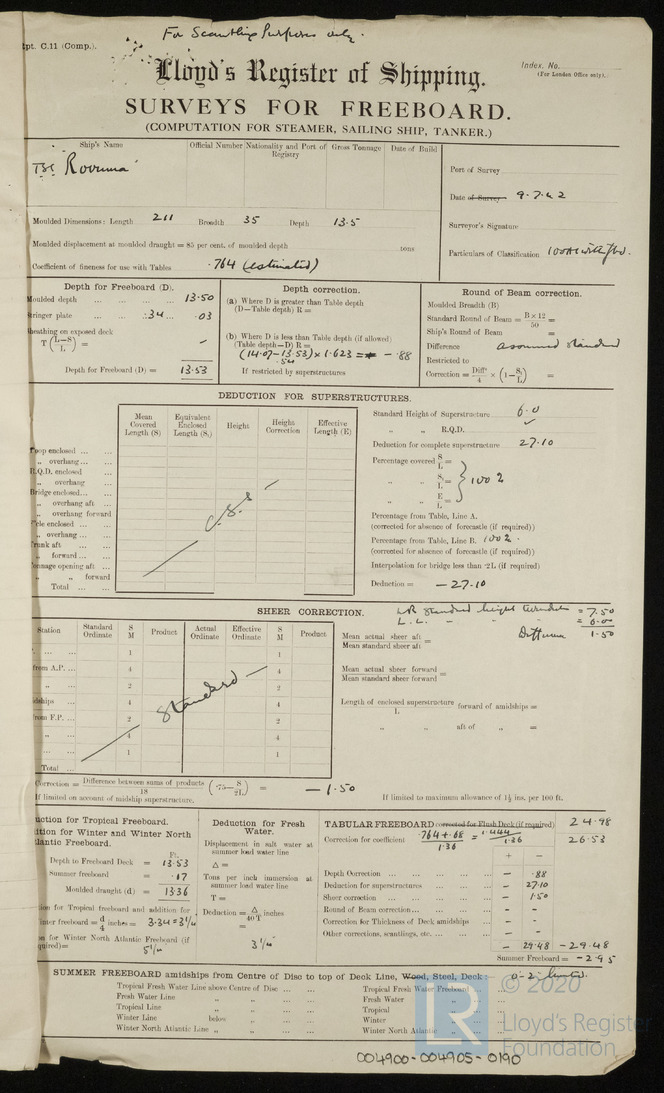 For Scantling Purposes only.
pt. C.11 (Comp.).
Index. No.
(For London Office only).
Lloyd's Register of Shipping.
SURVEYS FOR FREEBOARD.
(COMPUTATION FOR STEAMER, SAILING SHIP, TANKER.)
Ship's Name
Official Number
Nationality and Port of Registry
Gross Tonnage
Date of Build
Port of Survey
"Rovuma"
Date of Survey 9.7.42
Moulded Dimensions: Length 211 Breadth 35 Depth 13.5
Surveyor's Signature
Moulded displacement at moulded draught = 85 per cent. of moulded depth tons
Particulars of Classification 100A1 with fbd.
Coefficient of fineness for use with Tables .764 (estimated)
Depth for Freeboard (D).
Moulded depth ... ... ... 13.50
tringer plate ... .34 ... .03
heathing on exposed deck
T (L-S/L) = -
Depth for Freeboard (D) = 13.53
Depth correction.
(a) Where D is greater than Table depth
(D-Table depth) R =
(b) Where D is less than Table depth (if allowed)
(Table depth-D) R =
(14.07-13.53) x 1.623 = - .88
.54
If restricted by superstructures
Round of Beam correction.
Moulded Breadth (B)
Standard Round of Beam = B x 12/50 =
Ship's Round of Beam =
Difference assumed standard
Restricted to
Correction = Diff/4 x (1 - S₁/L) =
DEDUCTION FOR SUPERSTRUCTURES.
Mean Covered Length (S)
Equivalent Enclosed Length (S₁)
Height
Height Correction
Effective Length (E)
oop enclosed ... ...
„ overhang ... ...
R.Q.D. enclosed ...
„ overhang
Bridge enclosed ... ...
„ overhang aft ...
„ overhang forward
'cle enclosed ... ...
„ overhang ... ...
runk aft ... ...
„ forward ... ...
onnage opening aft ...
„ „ forward
Total ... ...
C.S.S -
Standard Height of Superstructure 6.0
„ „ R.Q.D.
Deduction for complete superstructure 27.10
Percentage covered S/L =
„ „ S₁/L = } 100 %
„ „ E/L =
Percentage from Table, Line A.
(corrected for absence of forecastle (if required))
Percentage from Table, Line B. 100%.
(corrected for absence of forecastle (if required))
Interpolation for bridge less than ·2L (if required)
Deduction = -27.10
SHEER CORRECTION.
Station
Standard Ordinate
S M
Product
Actual Ordinate
Effective Ordinate
S M
Product
... ... 1 1
from A.P. ... 4 4
„ ... 2 2
idships ... 4 4
from F.P. ... 2 2
„ ... 4 4
„ ... 1 1
Total ...
Standard -
LR Standard height = 7.50
L.L. - - = 6.00
Difference 1.50
Mean actual sheer aft
Mean standard sheer aft =
Mean actual sheer forward
Mean standard sheer forward =
Length of enclosed superstructure/L forward of amidships =
„ „ aft of „ =
Correction = Difference between sums of products/18 (·75 - S/2L) = - 1.50
If limited on account of midship superstructure.
If limited to maximum allowance of 1½ ins. per 100 ft.
uction for Tropical Freeboard.
ition for Winter and Winter North
lantic Freeboard.
Ft.
Depth to Freeboard Deck = 13.53
Summer freeboard = .17
Moulded draught (d) = 13.36
ion for Tropical freeboard and addition for
inter freeboard = d/4 inches = 3.34 = 3¼
on for Winter North Atlantic Freeboard (if
quired) =
5¼
Deduction for Fresh Water.
Displacement in salt water at summer load water line
Δ =
Tons per inch immersion at summer load water line
T =
Deduction = Δ/40 T inches
=
3¼"
TABULAR FREEBOARD corrected for Flush Deck (if required) 24.98
Correction for coefficient .764 + .68/1.36 = 1.444/1.36 26.53
+ -
Depth Correction ... - .88
Deduction for superstructures ... - 27.10
Sheer correction ... - 1.50
Round of Beam correction ... - -
Correction for Thickness of Deck amidships - -
Other corrections, scantlings, etc. ... - -
- 29.48 -29.48
Summer Freeboard = -2.95
SUMMER FREEBOARD amidships from Centre of Disc to top of Deck Line, Wood, Steel, Deck: 0-2
Tropical Fresh Water Line above Centre of Disc ... ...
Fresh Water Line „ „ ... ...
Tropical Line „ „ ... ...
Winter Line below „ ... ...
Winter North Atlantic Line „ „ ... ...
Tropical Fresh Water Freeboard
Fresh Water „
Tropical „
Winter „
Winter North Atlantic „
LR
© 2020
Lloyd's Register
Foundation
004900-004905-0190